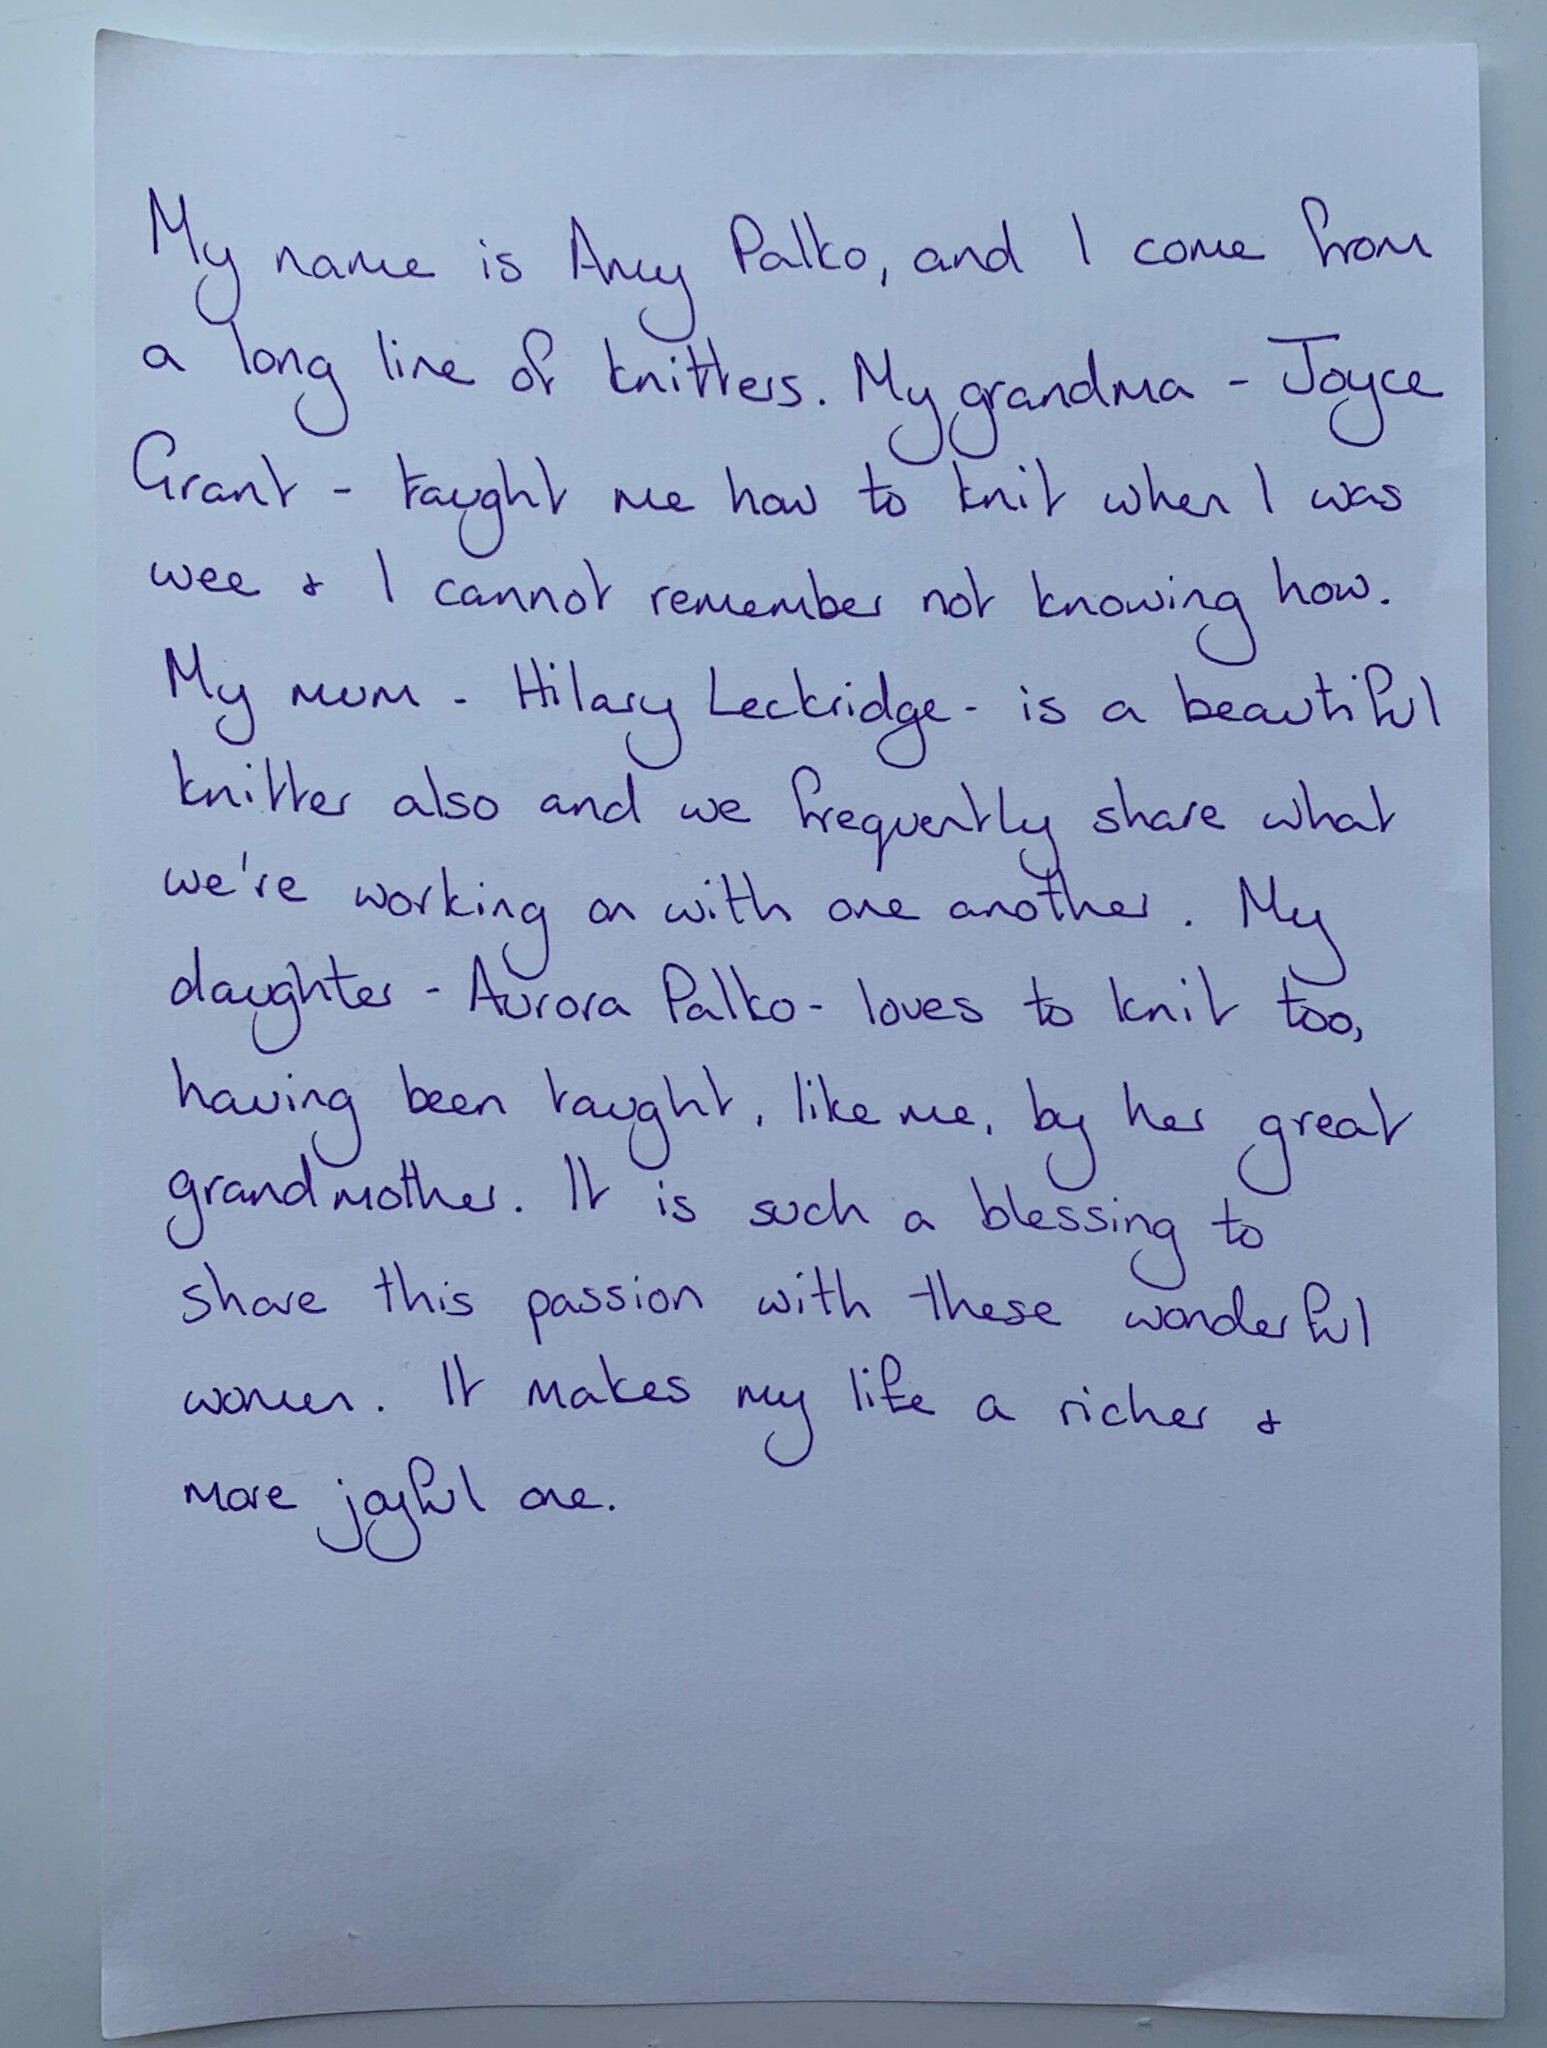 My name is Amy Palko, and I come from
a long line of knitters. My grandma - Joyce
Grant - taught me how to knit when I was
wee & I cannot remember not knowing how.
My mum - Hilary Leckridge - is a beautiful
knitter also and we frequently share what
we're working on with one another. My
daughter - Aurora Palko - loves to knit too,
having been taught, like me, by her great
grandmother. It is such a blessing to
share this passion with these wonderful
women. It makes my life a richer &
more joyful one.